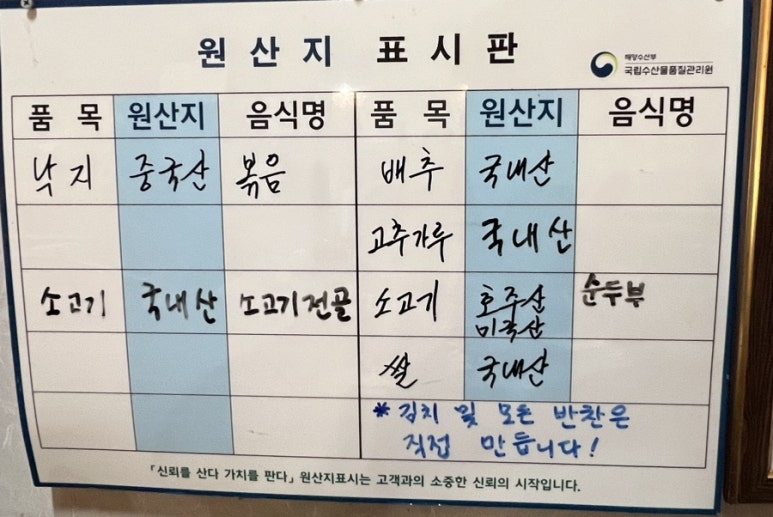 원산지 표시판
해양수산부
국립수산물품질관리원
품목 원산지 음식명 품목 원산지 음식명
낙지 중국산 볶음 배추 국내산
고추가루 국내산
소고기 국내산 소고기전골 소고기 호주산 순두부
미국산
쌀 국내산
* 김치 및 모든 반찬은
직접 만듭니다!
「신뢰를 산다 가치를 판다」 원산지표시는 고객과의 소중한 신뢰의 시작입니다.